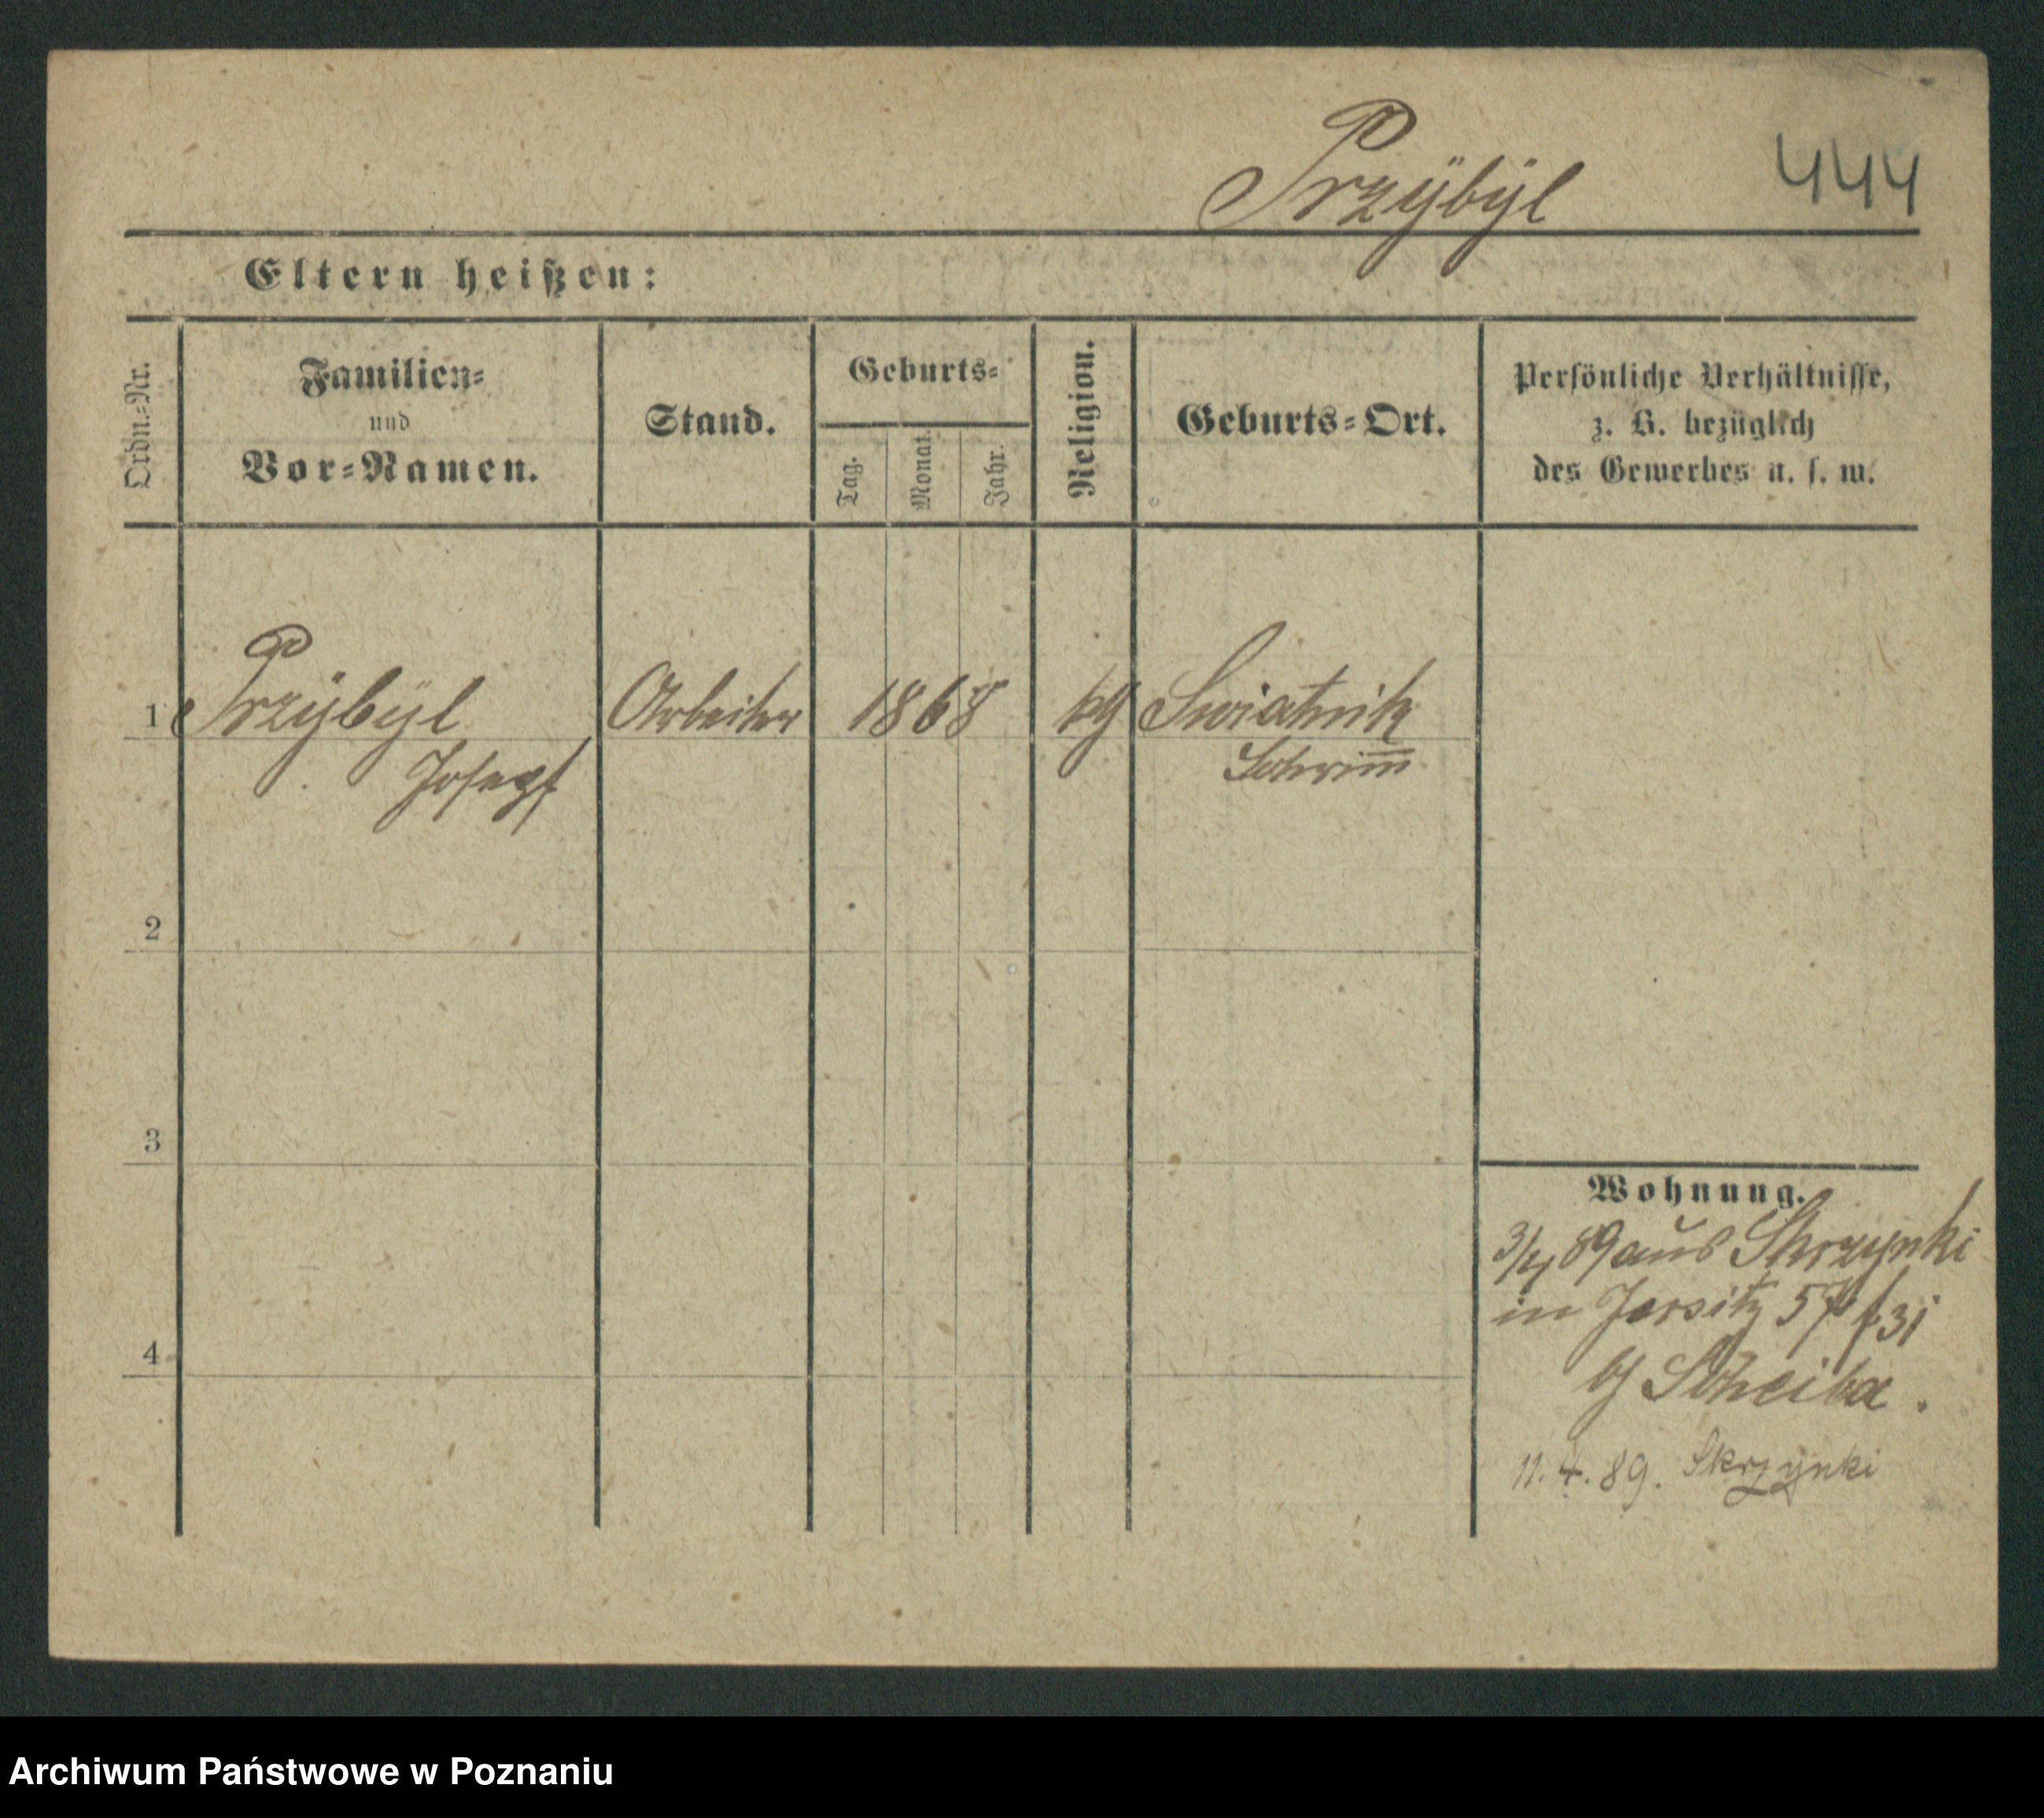 Przÿbÿl
444
Eltern heißen:
Ordn.=Nr.
Familien=
und
Vor=Namen.
Stand.
Geburts=
Tag.
Monat.
Jahr.
Religion.
Geburts=Ort.
Persönliche Verhältnisse,
z. B. bezüglich
des Gewerbes u. s. w.
1
Przÿbÿl
Josepf
Arbeiter
1868
Swiatnik
Schrim̅
2
3
4
Wohnung.
3/4 89 aus Skrzynki
in Jersitz 57
bj Scheiba.
11. 4. 89. Skrzynki
Archiwum Państwowe w Poznaniu